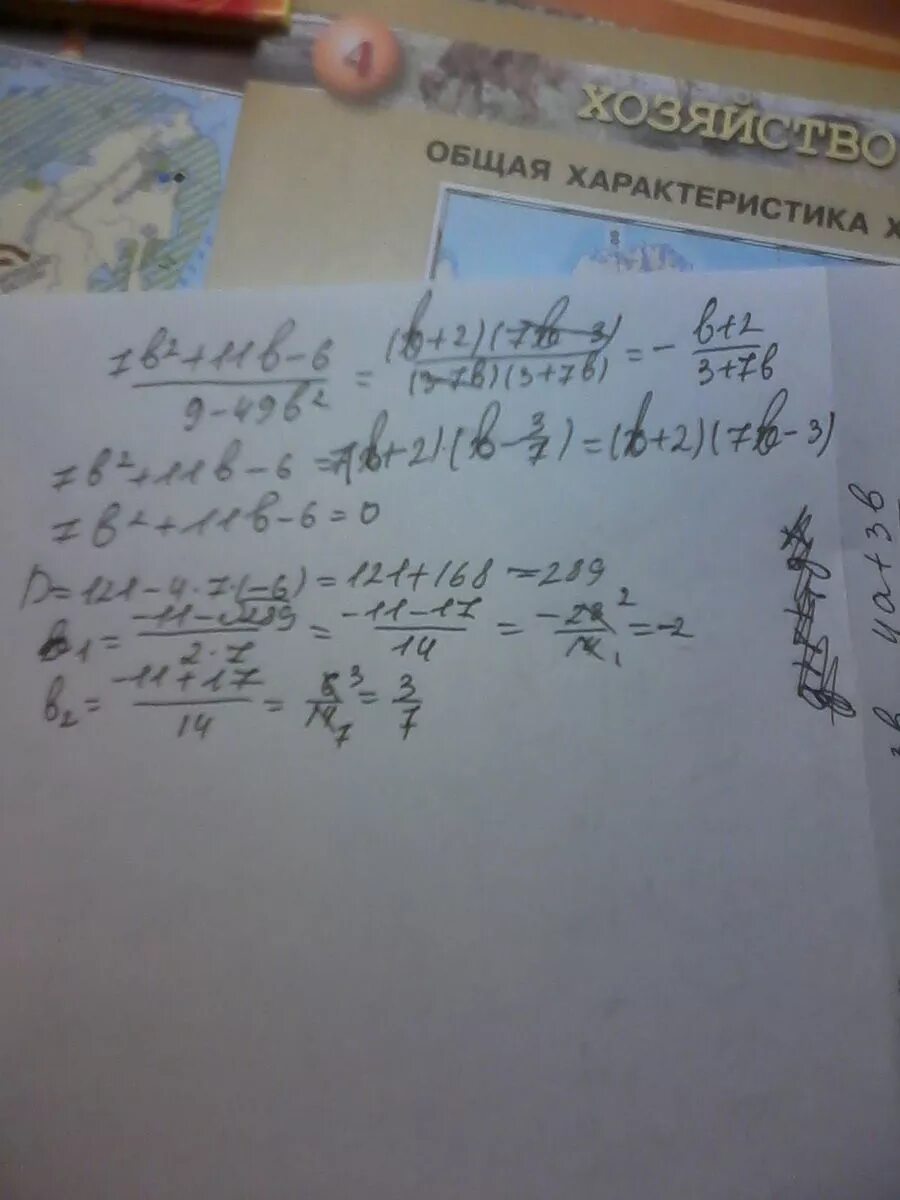 4
ХОЗЯЙСТВО
ОБЩАЯ ХАРАКТЕРИСТИКА Х
8
(7b²+11b-6)/(9-49b²) = ((b+2)(7b-3))/((3-7b)(3+7b)) = - (b+2)/(3+7b)
7b²+11b-6 = 7(b+2)·(b-3/7) = (b+2)(7b-3)
7b²+11b-6=0
D=121-4·7·(-6)=121+168=289
b₁ = (-11-√289)/(2·7) = (-11-17)/14 = -28²/14₁ = -2
b₂ = (-11+17)/14 = 6³/14₇ = 3/7
4a+3b